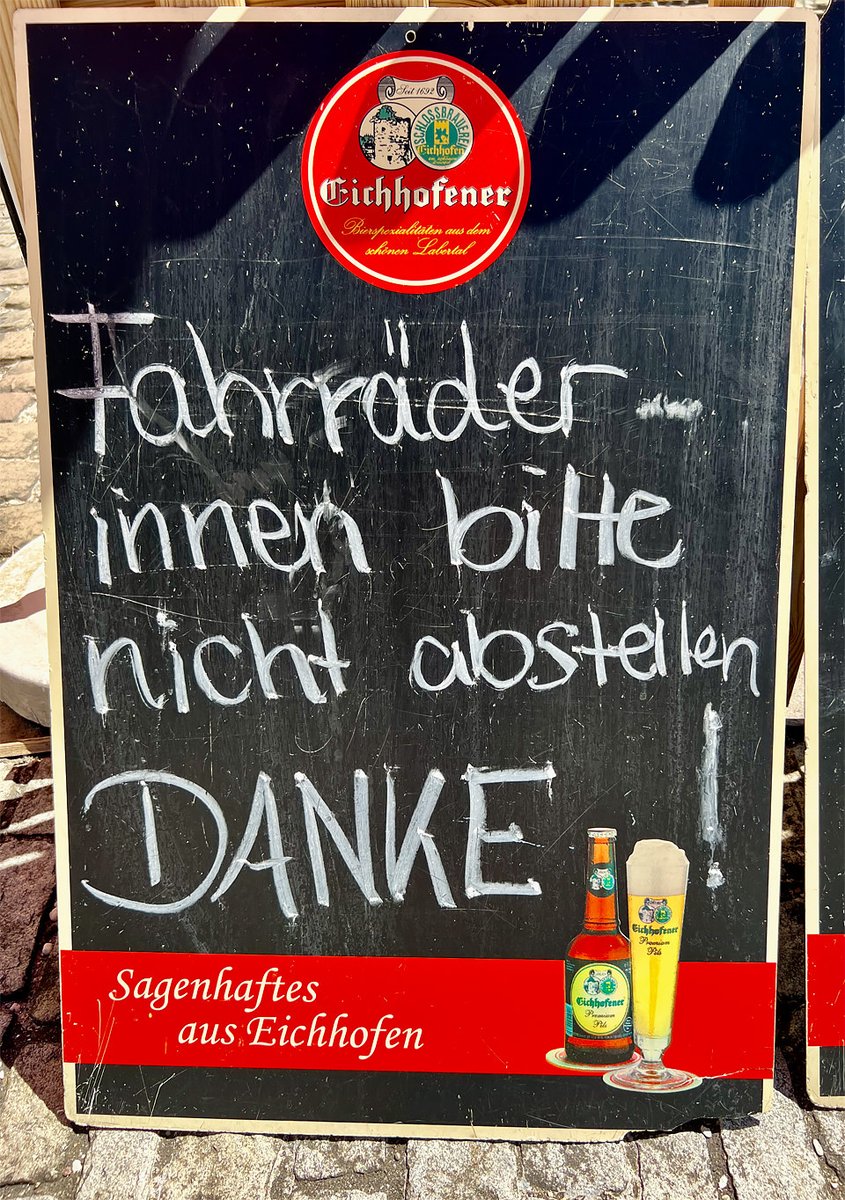 Seit 1692
SCHLOSSBRAUEREI
Eichhofen
Eichhofener
Bierspezialitäten aus dem
schönen Labertal
Fahrräder-
innen bitte
nicht abstellen
DANKE !
Eichhofener
Premium
Pils
Eichhofener
Premium
Pils
Sagenhaftes
aus Eichhofen